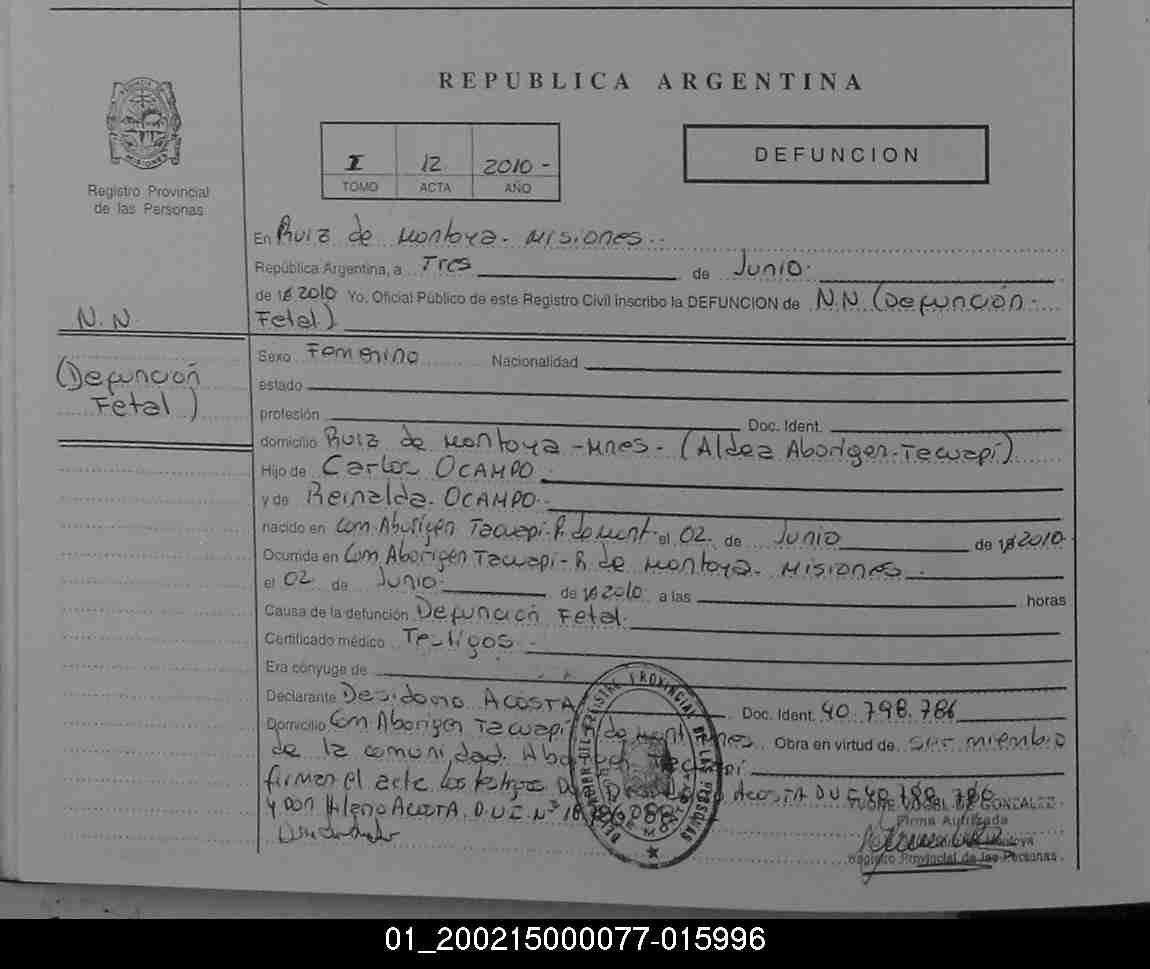 REPUBLICA ARGENTINA
PROVINCIA
MISIONES
Registro Provincial
de las Personas
I 12 2010 -
TOMO ACTA AÑO
DEFUNCION
En Ruiz de Montoya - Misiones -
República Argentina, a Tres de Junio
de 2010 Yo, Oficial Público de este Registro Civil inscribo la DEFUNCION de N.N (Defunción
Fetal)
N.N.
(Defunción
Fetal)
Sexo Femenino Nacionalidad
estado
profesión Doc. Ident.
domicilio Ruiz de Montoya - Mnes - (Aldea Aborigen - Tacuapí)
Hijo de Carlos OCAMPO
y de Reinalda OCAMPO
nacido en Com. Aborigen Tacuapi - R. de Mont. el 02 de Junio de 2010
Ocurrida en Com Aborigen Tacuapi - R. de Montoya - Misiones
el 02 de Junio de 2010 a las horas
Causa de la defunción Defunción Fetal
Certificado médico Testigos
Era cónyuge de
Declarante ACOSTA Doc. Ident. 40.798.786
Domicilio Com Aborigen Tacuapí R de Mont Mnes Obra en virtud de ser miembro
de la comunidad Aborigen Tacuapí
firman el acta los testigos ACOSTA D.U.I
y Don ACOSTA. D.U.I. Nº
DE GONZALEZ
Firma Autorizada
Registro Provincial de las Personas
REGISTRO PROVINCIAL DE LAS PERSONAS
01_200215000077-015996